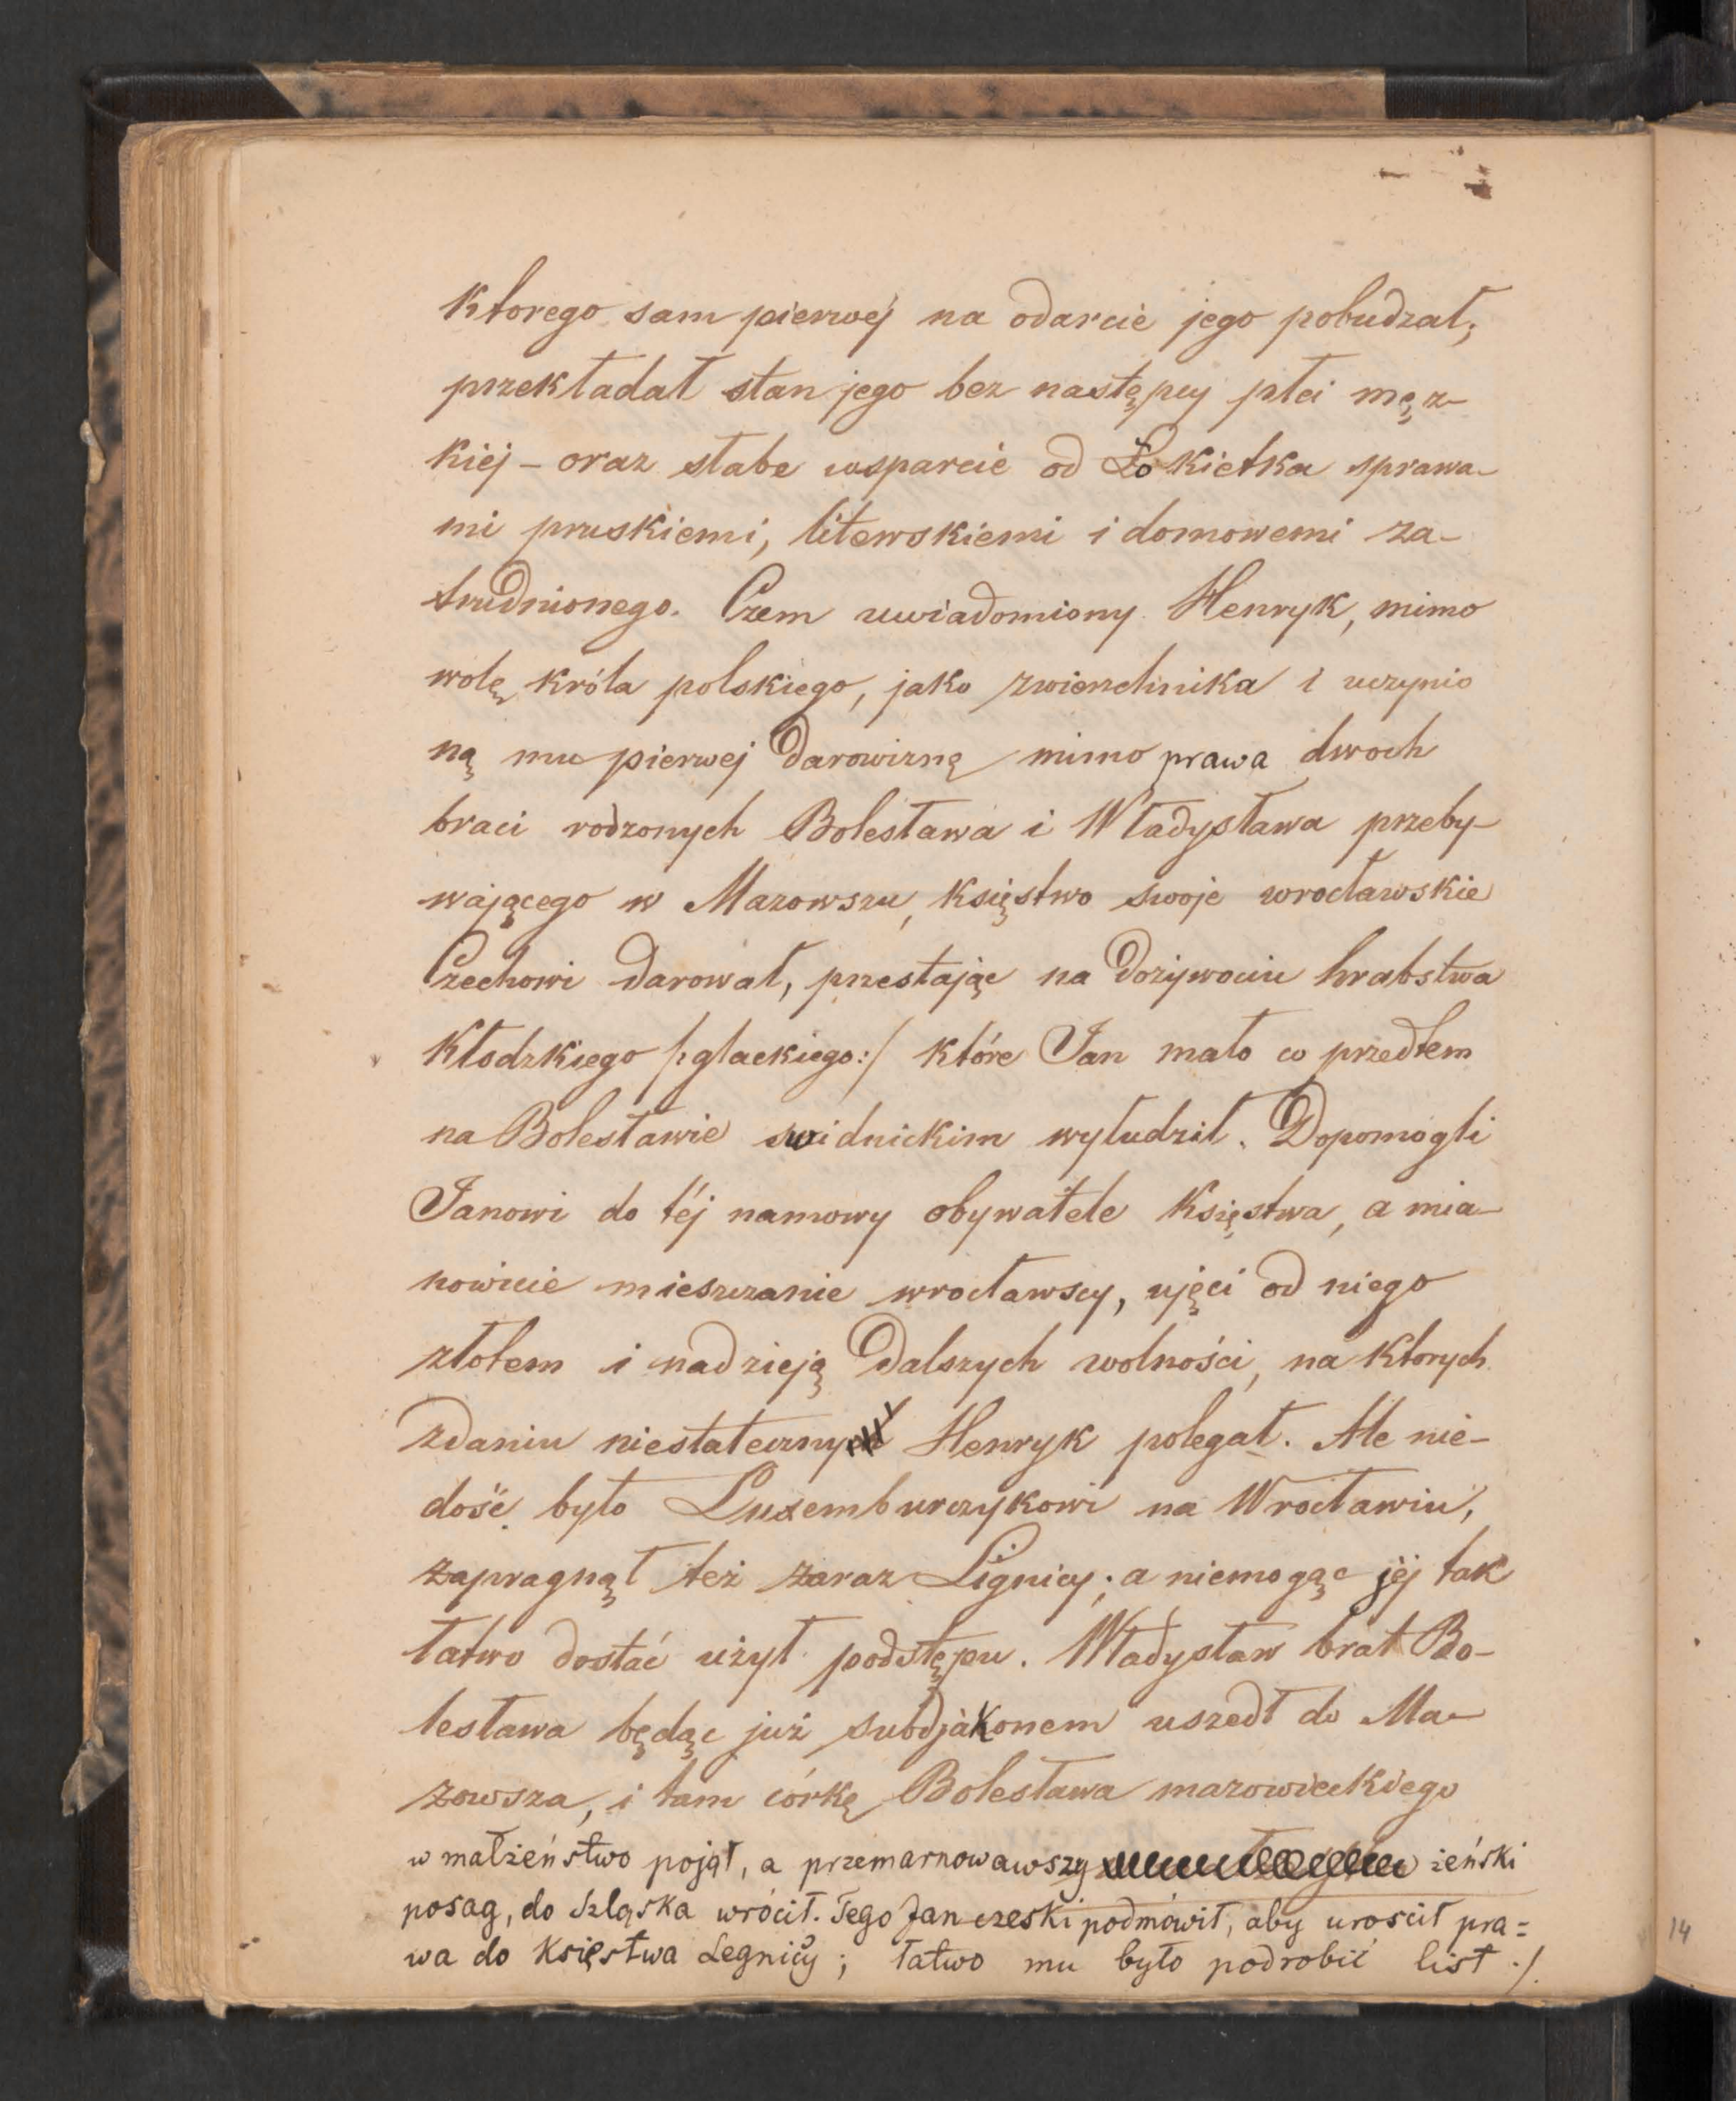 ktorego sam pierwej na odarcie jego pobudzał;
przekładał stan jego bez następcy płci męz-
kiej – oraz słabe wsparcie od Łokietka sprawa-
mi pruskiemi, litewskiemi i domowemi za-
trudnionego. Czem uwiadomiony Henryk, mimo
wolę króla polskiego, jako zwierzchnika i uczynio
ną mu pierwej darowiznę mimo prawa dwoch
braci rodzonych Bolesława i Władysława przeby-
wającego w Mazowszu, księstwo swoje wrocławskie
Czechowi darował, przestając na dożywociu hrabstwa
Kłodzkiego /:glackiego:/ które Jan mało co przedtem
na Bolesławie swidnickim wyłudził. Dopomogli
Janowi do téj namowy obywatele Księstwa, a mia-
nowicie mieszczanie wrocławscy, ujęci od niego
złotem i nadzieją dalszych wolności, na ktorych
zdaniu niestatecznym Henryk polegał. Ale nie-
dość było Luxemburczykowi na Wrocławiu,
zapragnął też zaraz Lignicy; a niemogąc jéj tak
łatwo dostać użył podstępu. Władysław brat Bo-
lesława będąc już subdjakonem uszedł do Ma-
zowsza, i tam córkę Bolesława mazowieckiego
w małżeństwo pojął, a przemarnowawszy żeński
posag, do Szląska wrócił. Tego Jan czeski podmówił, aby urościł pra=
wa do Księstwa Legnicy; łatwo mu było podrobić list ./.
14